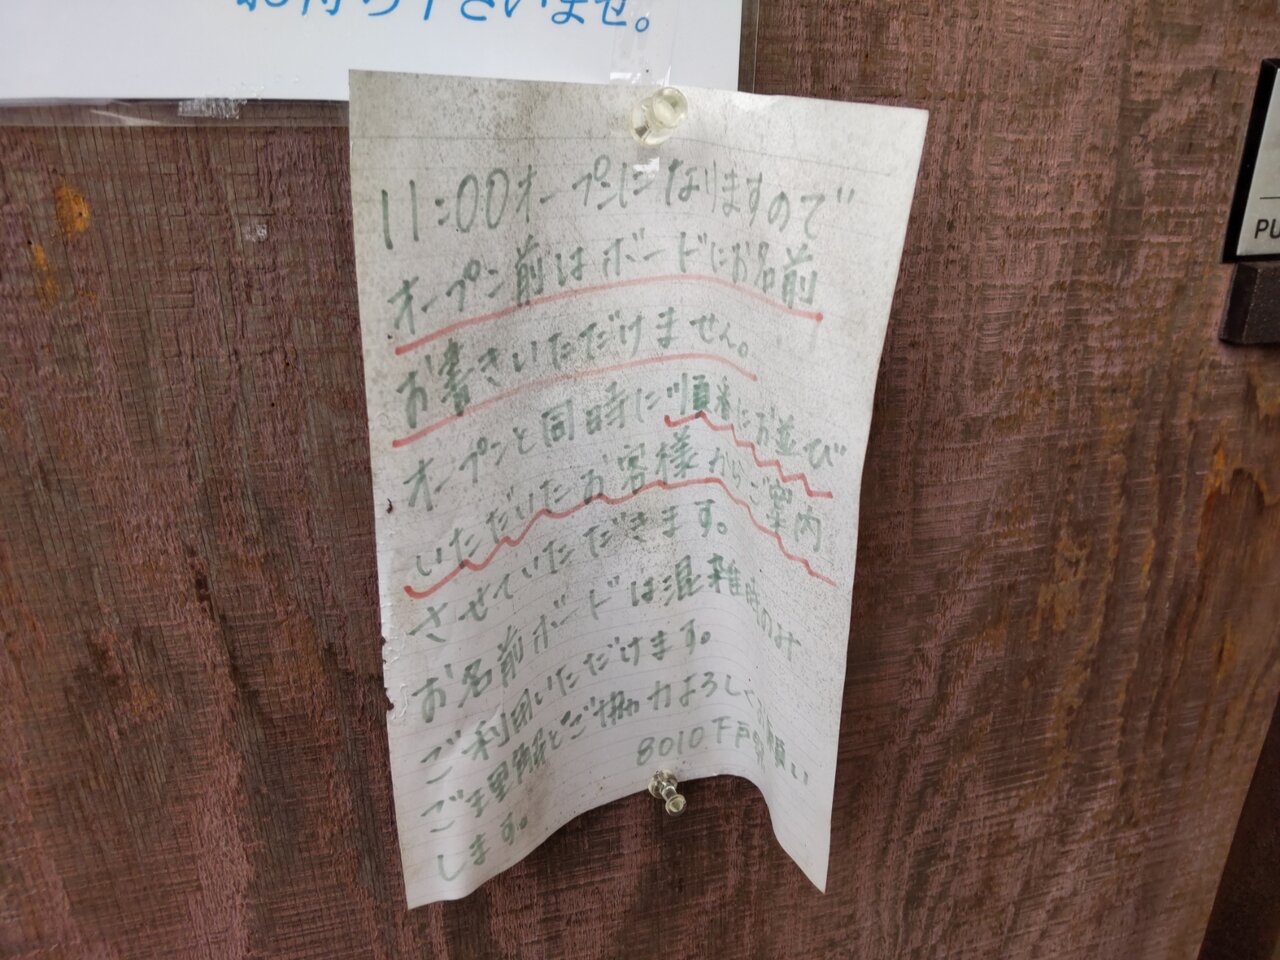 お待ち下さいませ。
11:00オープンになりますので
オープン前はボードにお名前
お書きいただけません。
オープンと同時に順番にお並び
いただいたお客様からご案内
させていただきます。
お名前ボードは混雑時のみ
ご利用いただけます。
ご理解とご協力よろしくお願い
します。
8010下戸
PU